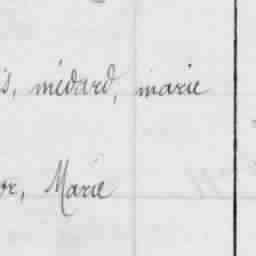 is, médard, marie
or, Marie